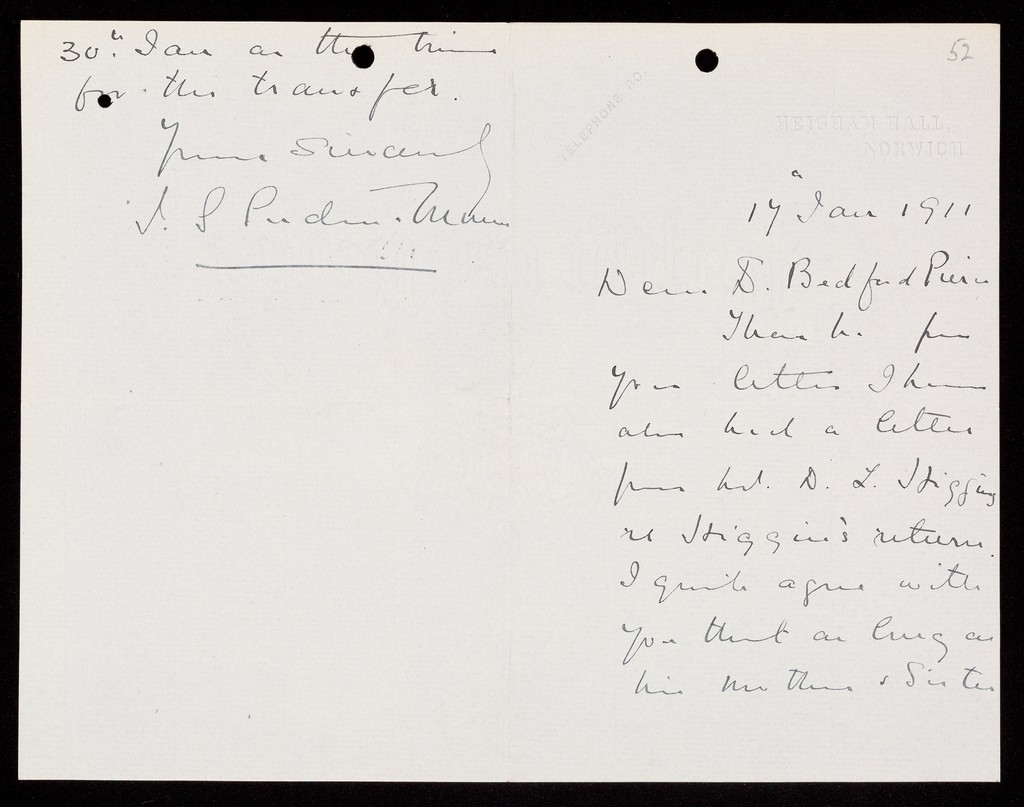 30th Jan as the time
for the transfer.
Yours Sincerely
J. G.
52
TELEPHONE 80.
HEIGHAM HALL,
NORWICH.
17th Jan 1911
Dear Dr. Bedford Pierce
Thanks for
your letter I have
also had a letter
from Mr. D. L. Higgins
re Higgin's return.
I quite agree with
you that as long as
his mother & Sister